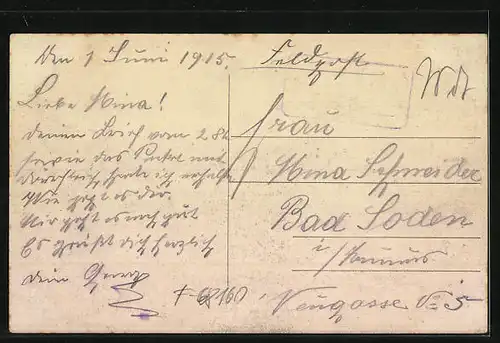 Den 1 Juni 1915.
Feldpost
Liebe Mina!
Deinen Brief vom 28t
sowie das Paket mit
habe ich erhalten
Wie geht es dir.
Mir geht es noch gut
Es grüßt dich herzlich
dein Georg
Frau
Mina Schneider
Bad Soden
i/Taunus
Neugasse No 5
68160